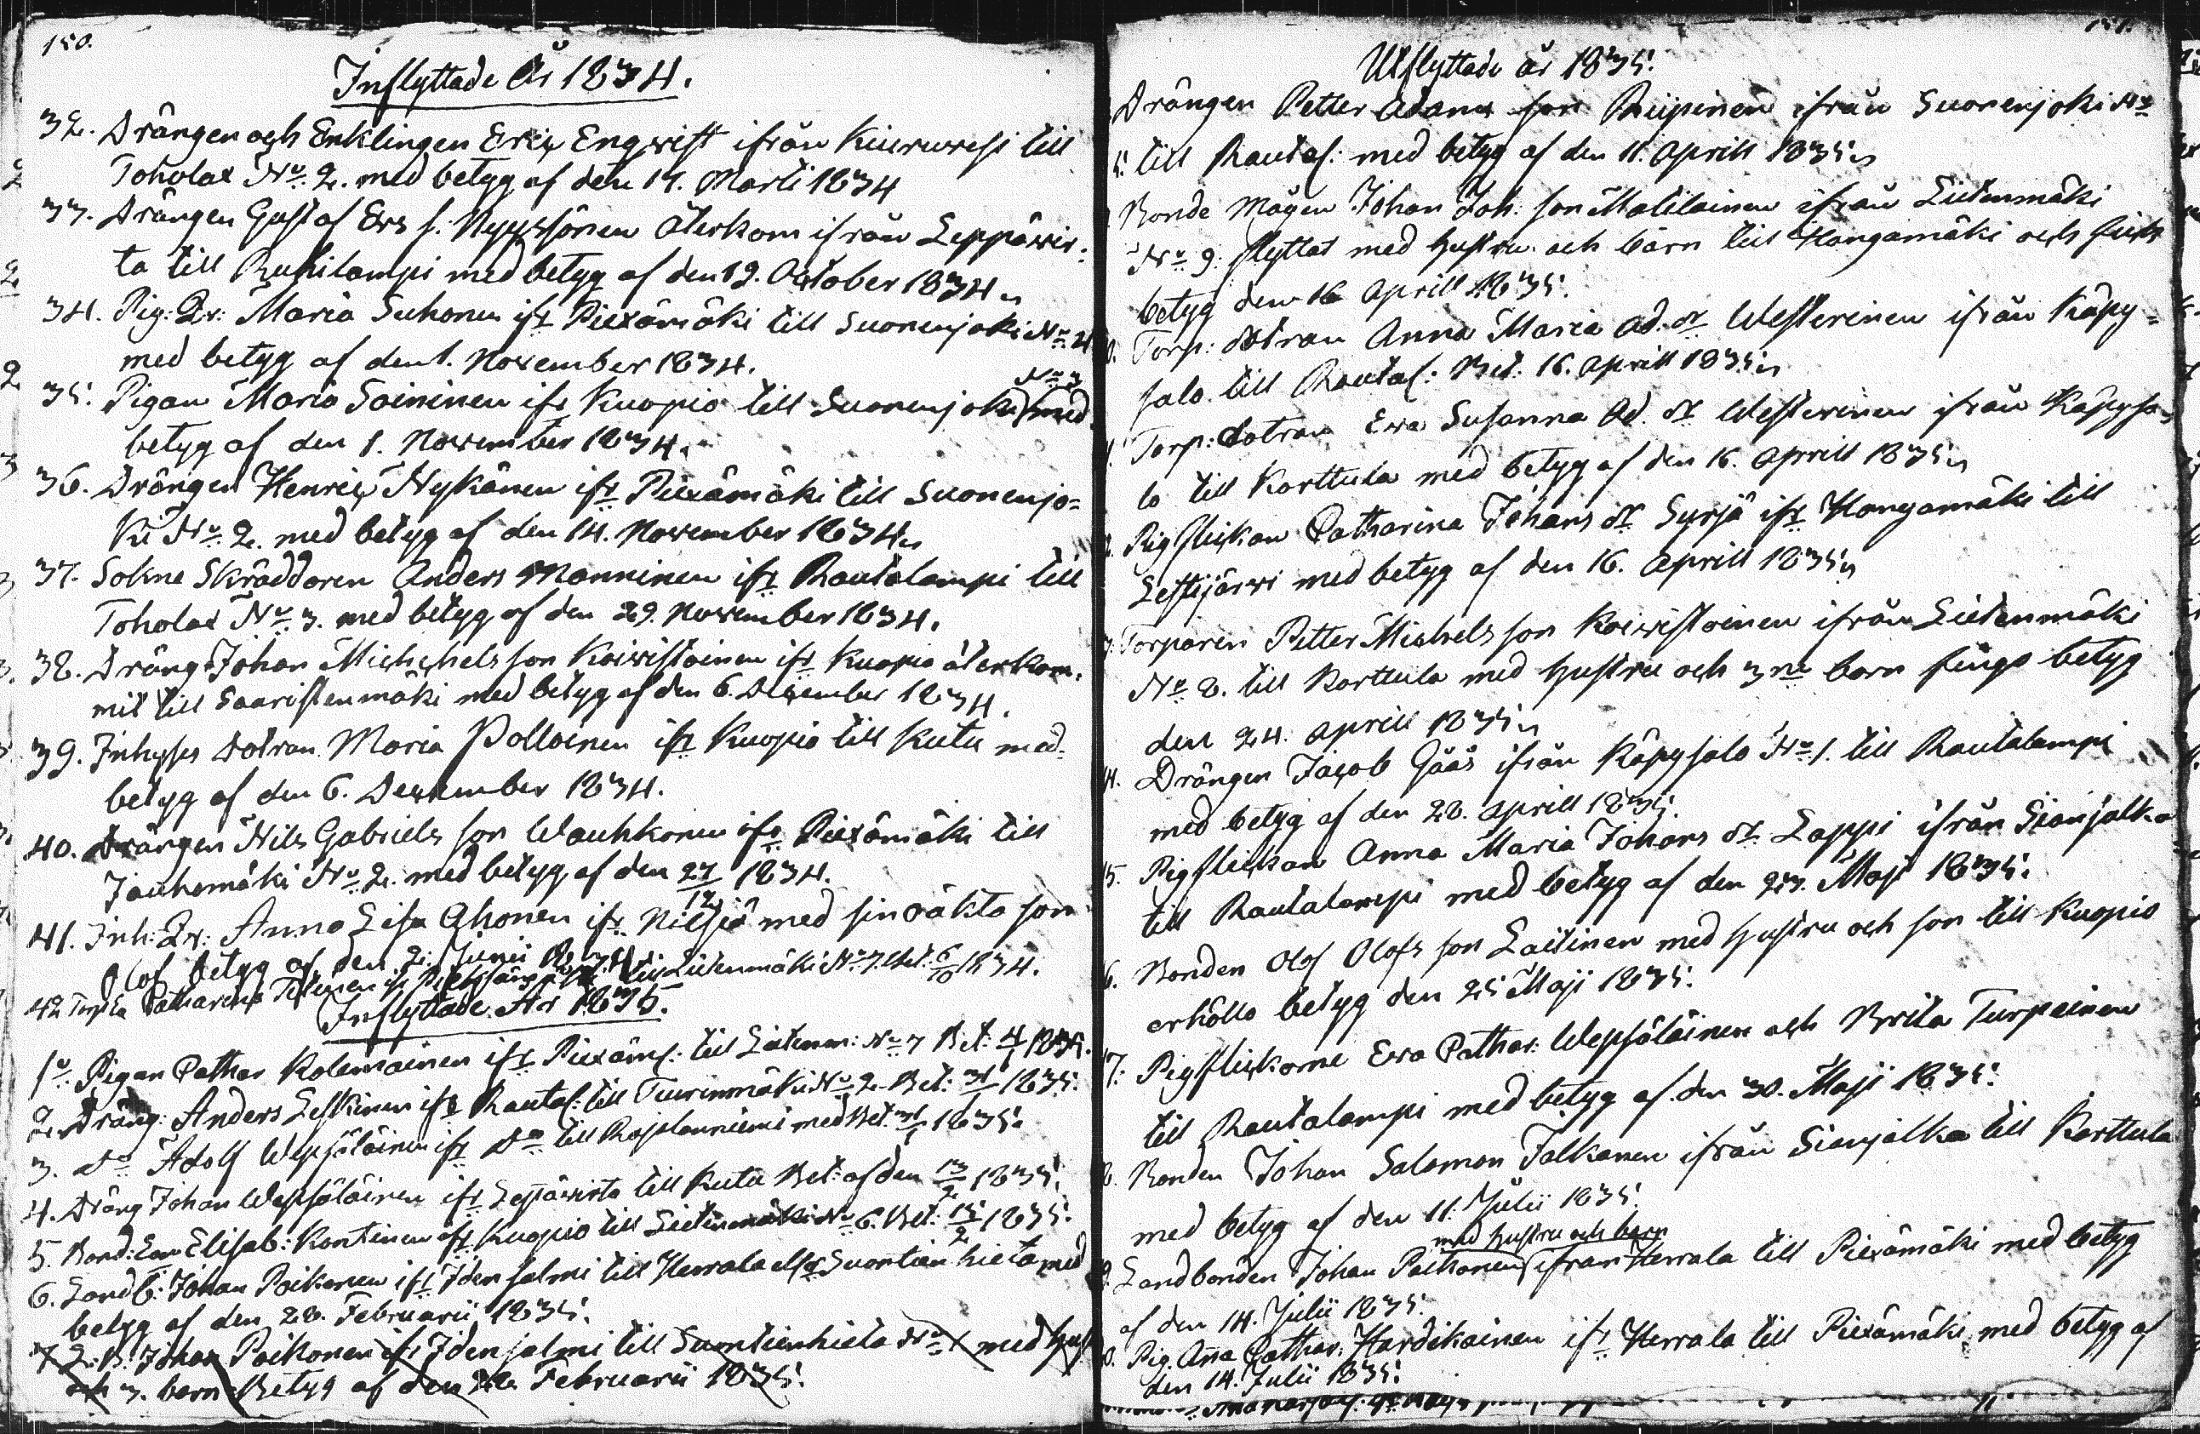 150.
Inflyttade År 1834.
32. Drängen och Enklingen Eric Engwist ifrån Kiuruwesi till
Toholax No. 2. med betyg af den 14. Martii 1834
33. Drängen Gustaf Ers s. Nyyssönen återkom ifrån Leppäwir:
ta till Ruhilampi med betyg af den 19. October 1834
34. Pig: Dr: Maria Suhonen ifr Piexämäki till Suonenjoki No 4
med betyg af den 1. November 1834.
35. Pigan Maria Soininen ifr Kuopio till Suonenjoki No 3 med
betyg af den 1. November 1834.
36. Drängen Henric Nykänen ifr Piexämäki till Suonenjo=
ki No. 2. med betyg af den 14. November 1834
37. Sokne Skräddaren Anders Manninen ifr Rautalampi till
Toholax No. 3. med betyg af den 29. November 1834.
38. Dräng Johan Michchels son Koiwistoinen ifr Kuopio återkom.
mit till Saaristenmäki med betyg af den 6. December 1834.
39. Inhyses dotran Maria Pollainen ifr Kuopio till Kutu med
betyg af den 6. December 1834.
40. Drängen Nils Gabriels son Wauhkonen ifr Piexämäki till
Jauhomäki No. 2. med betyg af den 27/12 1834.
41. Inh: Dr: Anna Lisa Ahonen ifr Nilsiä med sin oäkta son
Olof betyg af den 2. Junii
42 Catharina till Lietenmäki No 7. 6/10 1834.
Inflyttade År 1835.
1o. Pigan Cathar Kolemainen ifr Piexäm: till Lietenm: No 7 Bet: 4/1 1835.
2. Dräng: Anders Leskinen ifr Rautal: till Tuurinmäki No 2 Bet: 31/1 1835.
3. Do Adolf Wepsäläinen ifr Do till Rajalanniemi med Bet. 31/1 1835.
4. Dräng Johan Wepsäläinen ifr Leppäwirta till Kutu Bet: af den 13/2 1835.
5. Bond: Elisab: Kontinen ifr Kuopio till Lietenmäki No 6. Bet: 15/2 1835.
6. Landb: Johan Poikonen ifr Idensalmi till Herrala eller Suontienhieta med
betyg af den 28. Februarii 1835.
7 L: B: Johan Poikonen ifr Idensalmi till Suontienhieta No 1 med hust
och 3. barn Betyg af den 28. Februarii 1835.
151.
Utflyttade år 1835.
Drängen Petter Adams son Riipinen ifrån Suonenjoki No
5. till Rautal: med betyg af den 11. Aprill 1835
Bonde Mågen Johan Joh: son Matilainen ifrån Lietenmäki
No 9. flyttat med hustru och barn till Hangamäki och fick
betyg den 16 Aprill 1835.
Torp: dotran Anna Maria Ad. dr Westerinen ifrån Käpy=
salo till Rautal: Bet. 16. Aprill 1835
Torp: dotran Ewa Susanna Ad. dr Westerinen ifrån Käpysa=
lo till Karttula med betyg af den 16. Aprill 1835
Pigflickan Catharina Johans dr Syrjä ifr Hangamäki till
Lestijärwi med betyg af den 16. Aprill 1835
Torparen Petter Michels son Koiwistoinen ifrån Lietenmäki
No 8. till Karttula med hustru och 3ne barn fingo betyg
den 24. Aprill 1835
Drängen Jacob Gåås ifrån Käpysalo No 1. till Rautalampi
med betyg af den 28. Aprill 1835.
5. Pigflickan Anna Maria Johans dr Lappi ifrån Sianjalka
till Rautalampi med betyg af den 23. Maji 1835.
6. Bonden Olof Olofs son Laitinen med hustru och son till Kuopio
erhållo betyg den 25 Maji 1835.
7: Pigflickorne Ewa Cathar: Wepsäläinen och Brita Turpeinen
till Rautalampi med betyg af den 30. Maji 1835.
8. Bonden Johan Salomon Jalkanen ifrån Sianjalka till Karttula
med betyg af den 11. Julii 1835.
med hustru och barn
9. Landbonden Johan Poikonen ifrån Herrala till Piexämäki med betyg
af den 14. Julii 1835.
0. Pig. Ana Cathar: Hardikainen ifr Herrala till Piexämäki med betyg af
den 14. Julii 1835.